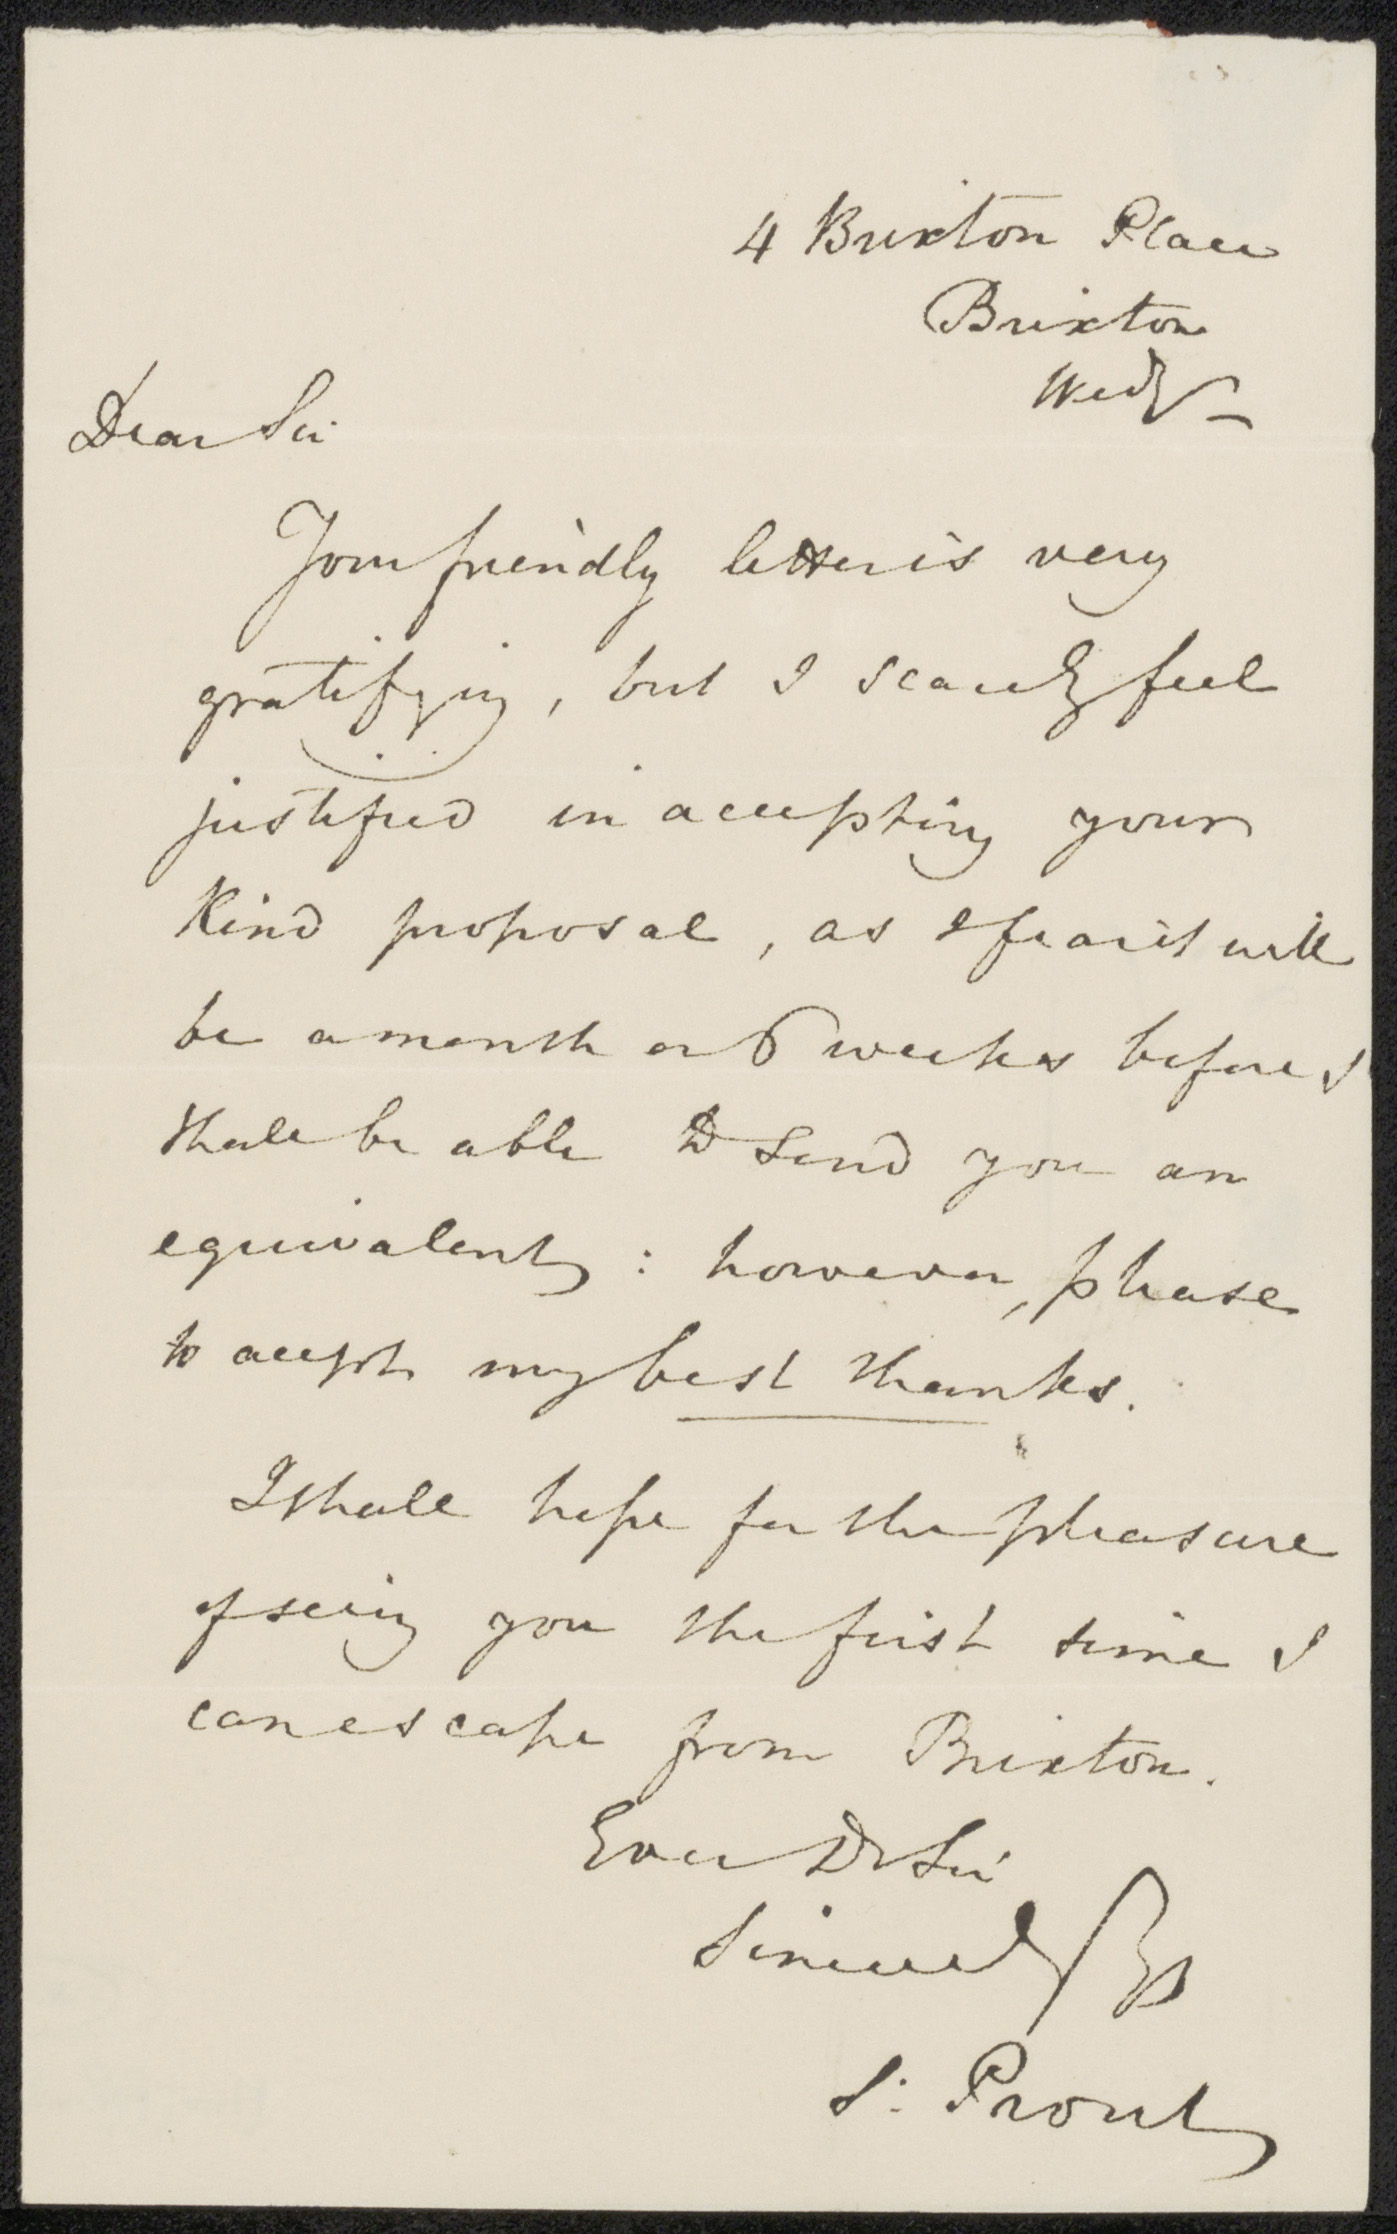 4 Brixton Place
Brixton
Wedy
Dear Sir
Your friendly letter is very
gratifying, but I scarcely feel
justified in accepting your
kind proposal, as I fear it will
be a month or 6 weeks before I
shall be able to send you an
equivalent: however, please
to accept my best thanks.
I shall hope for the pleasure
of seeing you the first time I
can escape from Brixton.
Ever Dr Sir
Sincerely Yrs
S: Prout